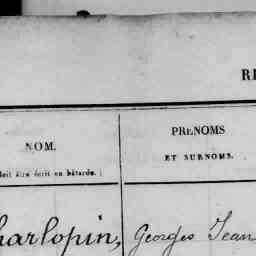 NOM.
doit être écrit en bâtarde.)
PRÉNOMS
ET SURNOMS.
harlopin, Georges Jean